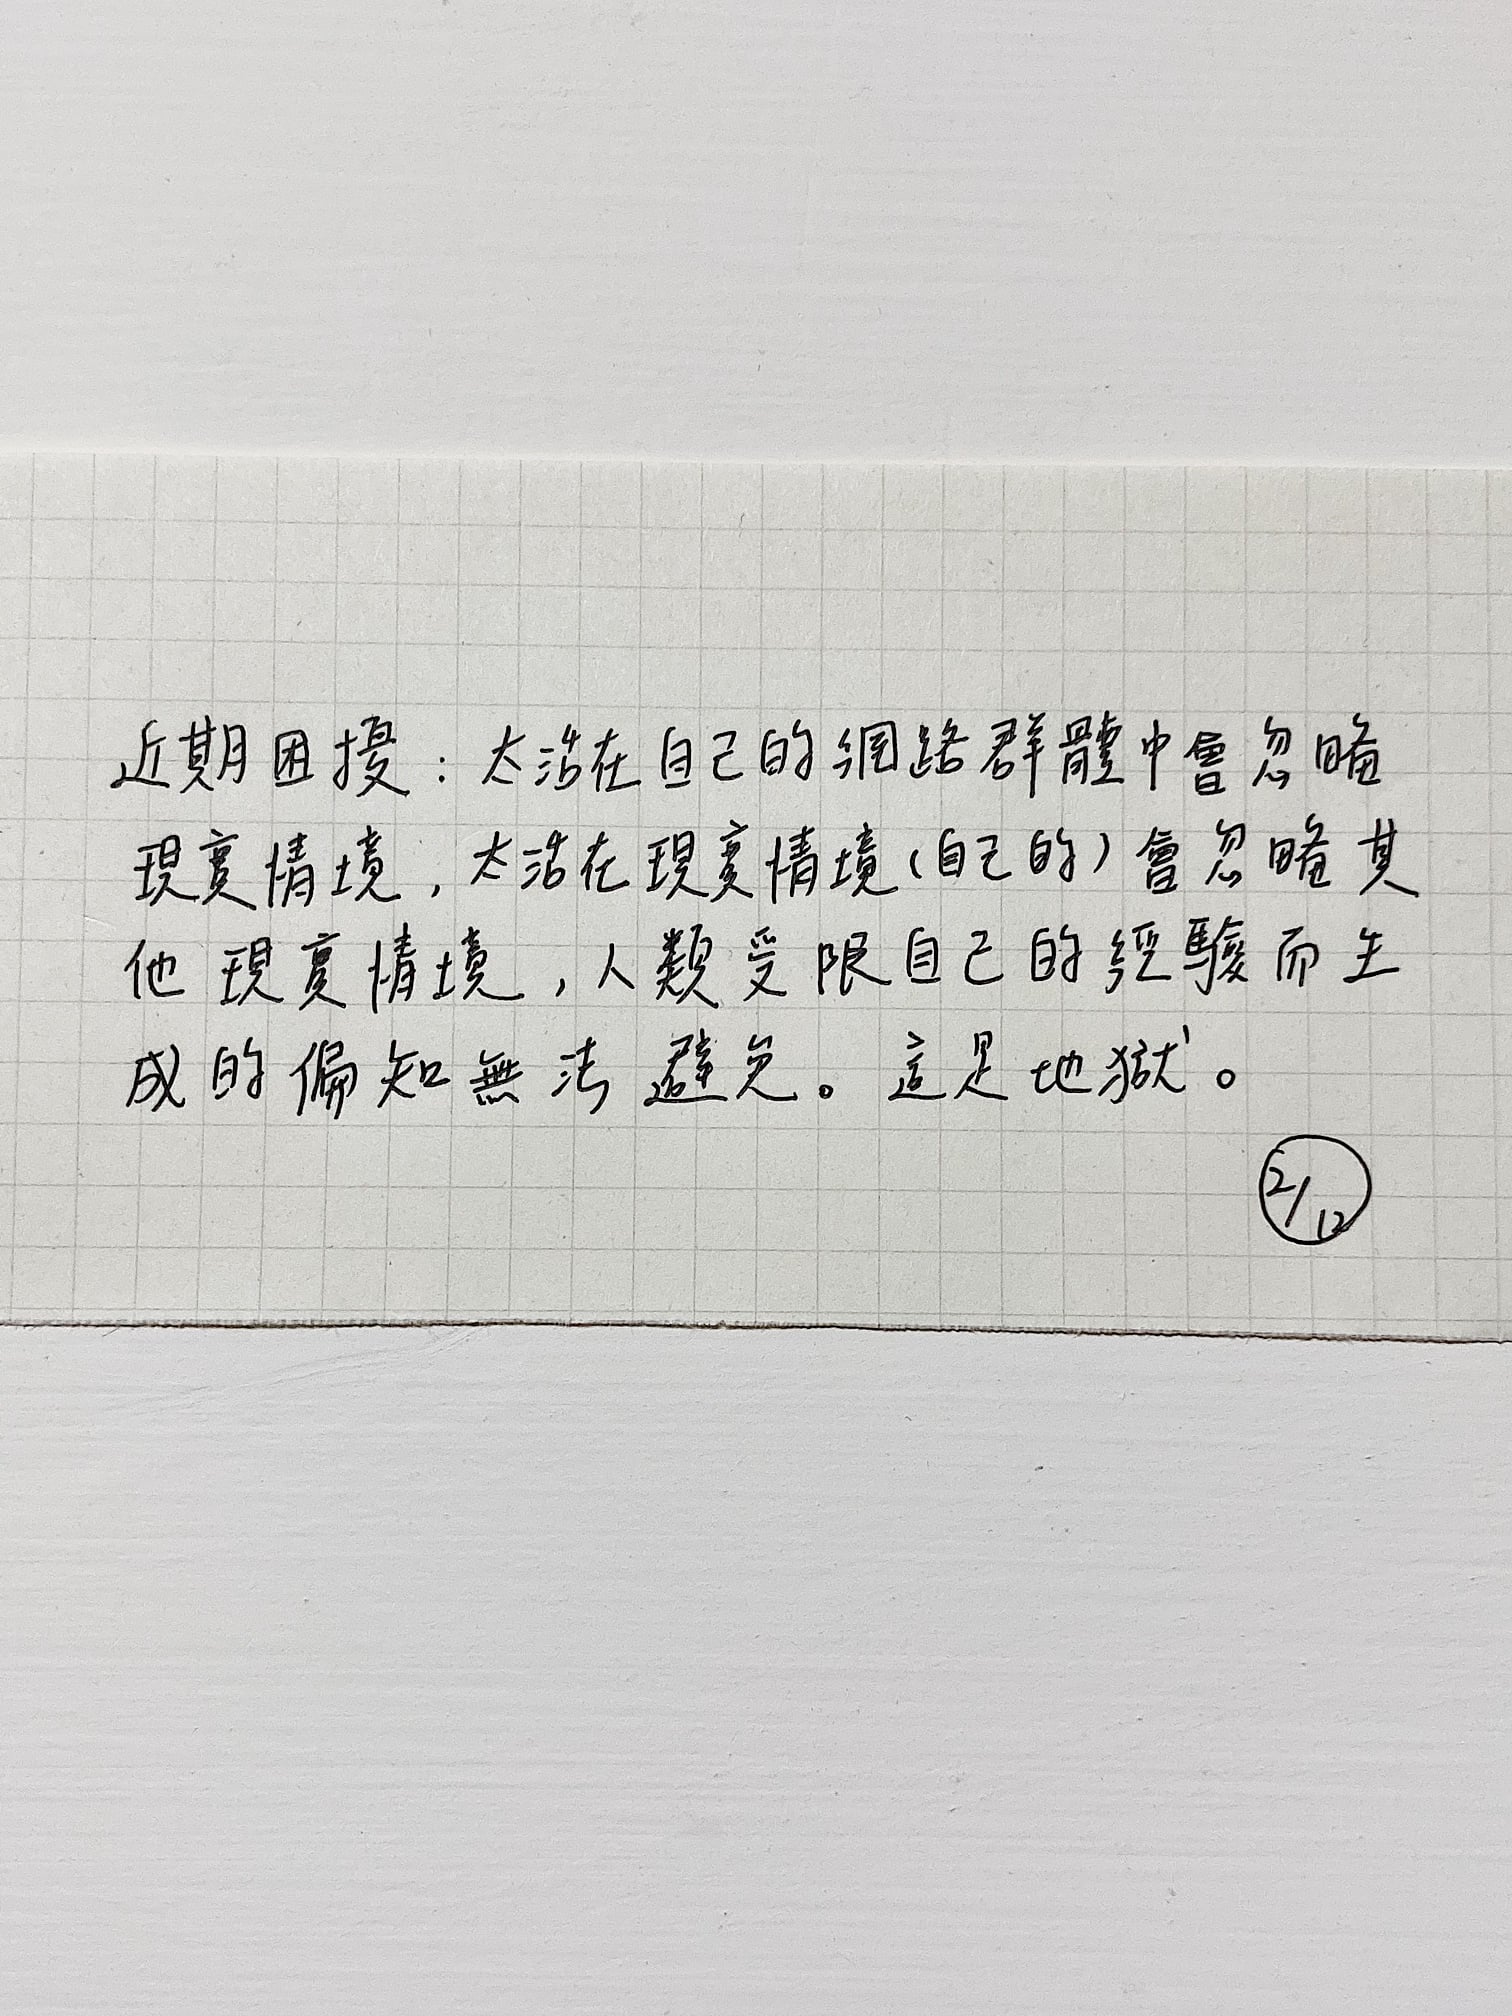 近期困擾：太活在自己的網路群體中會忽略
現實情境，太活在現實情境（自己的）會忽略其
他現實情境，人類受限自己的經驗而生
成的偏知無法避免。這是地獄。
2/12